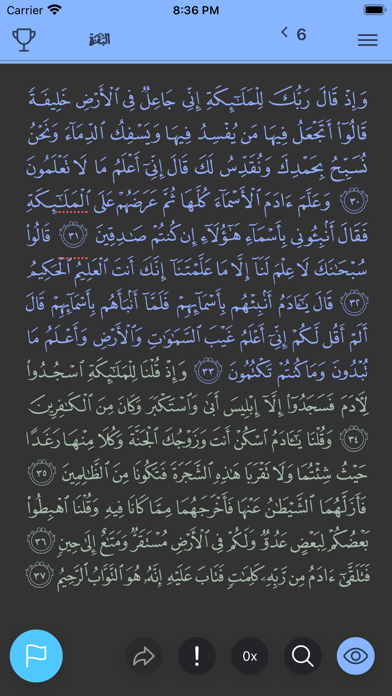 Carrier 8:36 PM
البقرة 6
وَإِذْ قَالَ رَبُّكَ لِلْمَلَـٰٓئِكَةِ إِنِّى جَاعِلٌ فِى ٱلْأَرْضِ خَلِيفَةً
قَالُوٓا۟ أَتَجْعَلُ فِيهَا مَن يُفْسِدُ فِيهَا وَيَسْفِكُ ٱلدِّمَآءَ وَنَحْنُ
نُسَبِّحُ بِحَمْدِكَ وَنُقَدِّسُ لَكَ قَالَ إِنِّىٓ أَعْلَمُ مَا لَا تَعْلَمُونَ
٣٠ وَعَلَّمَ ءَادَمَ ٱلْأَسْمَآءَ كُلَّهَا ثُمَّ عَرَضَهُمْ عَلَى ٱلْمَلَـٰٓئِكَةِ
فَقَالَ أَنۢبِـُٔونِى بِأَسْمَآءِ هَـٰٓؤُلَآءِ إِن كُنتُمْ صَـٰدِقِينَ ٣١ قَالُوا۟
سُبْحَـٰنَكَ لَا عِلْمَ لَنَآ إِلَّا مَا عَلَّمْتَنَآ إِنَّكَ أَنتَ ٱلْعَلِيمُ ٱلْحَكِيمُ
٣٢ قَالَ يَـٰٓـَٔادَمُ أَنۢبِئْهُم بِأَسْمَآئِهِمْ فَلَمَّآ أَنۢبَأَهُم بِأَسْمَآئِهِمْ قَالَ
أَلَمْ أَقُل لَّكُمْ إِنِّىٓ أَعْلَمُ غَيْبَ ٱلسَّمَـٰوَٰتِ وَٱلْأَرْضِ وَأَعْلَمُ مَا
تُبْدُونَ وَمَا كُنتُمْ تَكْتُمُونَ ٣٣ وَإِذْ قُلْنَا لِلْمَلَـٰٓئِكَةِ ٱسْجُدُوا۟
لِـَٔادَمَ فَسَجَدُوٓا۟ إِلَّآ إِبْلِيسَ أَبَىٰ وَٱسْتَكْبَرَ وَكَانَ مِنَ ٱلْكَـٰفِرِينَ
٣٤ وَقُلْنَا يَـٰٓـَٔادَمُ ٱسْكُنْ أَنتَ وَزَوْجُكَ ٱلْجَنَّةَ وَكُلَا مِنْهَا رَغَدًا
حَيْثُ شِئْتُمَا وَلَا تَقْرَبَا هَـٰذِهِ ٱلشَّجَرَةَ فَتَكُونَا مِنَ ٱلظَّـٰلِمِينَ ٣٥
فَأَزَلَّهُمَا ٱلشَّيْطَـٰنُ عَنْهَا فَأَخْرَجَهُمَا مِمَّا كَانَا فِيهِ وَقُلْنَا ٱهْبِطُوا۟
بَعْضُكُمْ لِبَعْضٍ عَدُوٌّ وَلَكُمْ فِى ٱلْأَرْضِ مُسْتَقَرٌّ وَمَتَـٰعٌ إِلَىٰ حِينٍ ٣٦
فَتَلَقَّىٰٓ ءَادَمُ مِن رَّبِّهِۦ كَلِمَـٰتٍ فَتَابَ عَلَيْهِ إِنَّهُۥ هُوَ ٱلتَّوَّابُ ٱلرَّحِيمُ ٣٧
! 0x